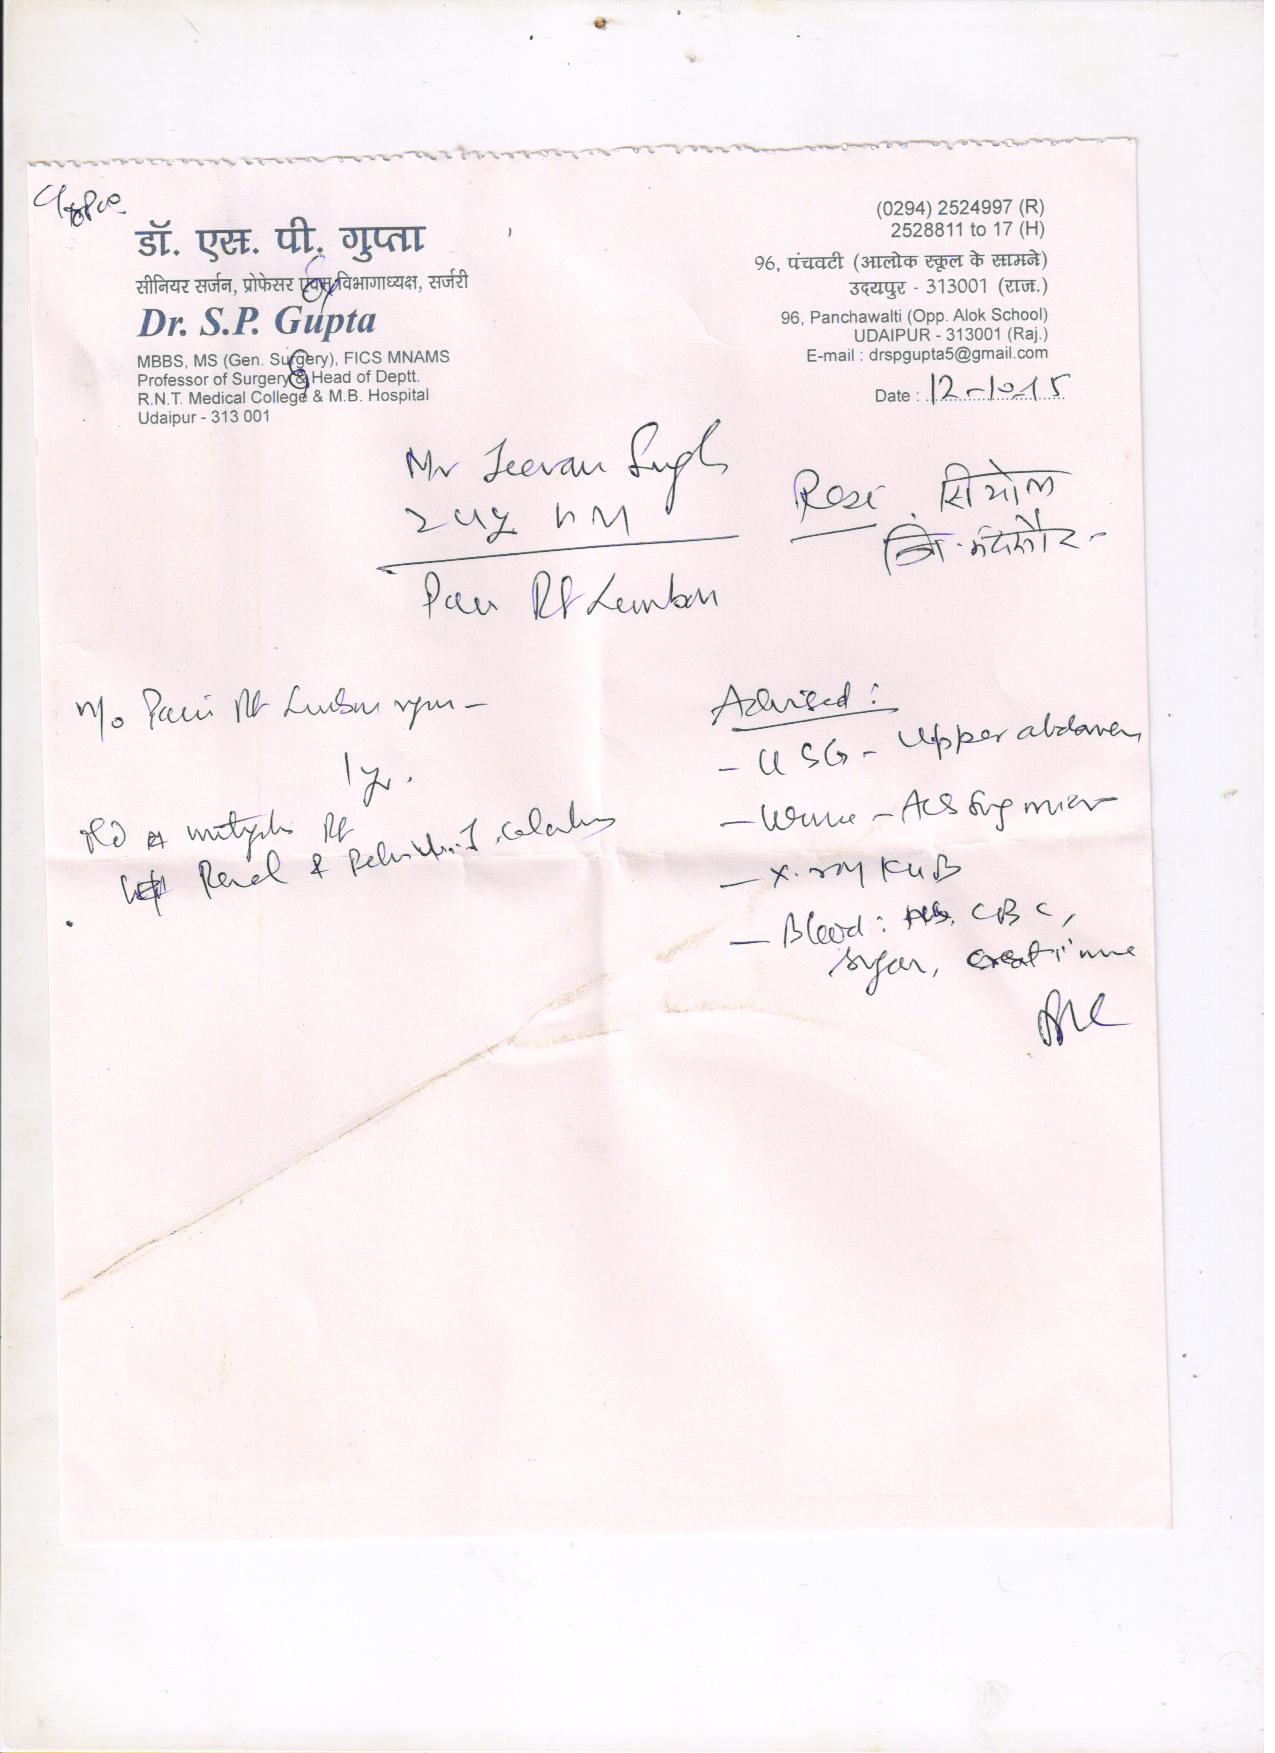 डॉ. एस. पी. गुप्ता
सीनियर सर्जन, प्रोफेसर एवम् विभागाध्यक्ष, सर्जरी
Dr. S.P. Gupta
MBBS, MS (Gen. Surgery), FICS MNAMS
Professor of Surgery & Head of Deptt.
R.N.T. Medical College & M.B. Hospital
Udaipur - 313 001
(0294) 2524997 (R)
2528811 to 17 (H)
96, पंचवटी (आलोक स्कूल के सामने)
उदयपुर - 313001 (राज.)
96, Panchawalti (Opp. Alok School)
UDAIPUR - 313001 (Raj.)
E-mail : drspgupta5@gmail.com
Date : 12-10-15
Mr Jeevan Singh
Resi
Pain Rt Lumbar
Pain Rt Lumbar
1 yr.
multiple Rt
Renal & calculus
Advised :
- USG - Upper abdomen
- Urine -
- X-ray KUB
- Blood : CBC,
sugar, creatinine